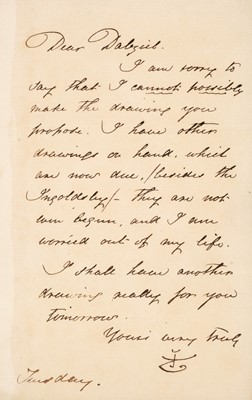 Dear Dalziel.
I am sorry to
say that I cannot possibly
make the drawing you
propose. I have other
drawings on hand, which
are now due, (besides the
Ingoldsby)— they are not
even begun, and I am
worried out of my life.
I shall have another
drawing ready for you
tomorrow.
Yours very truly
JT
Tuesday.